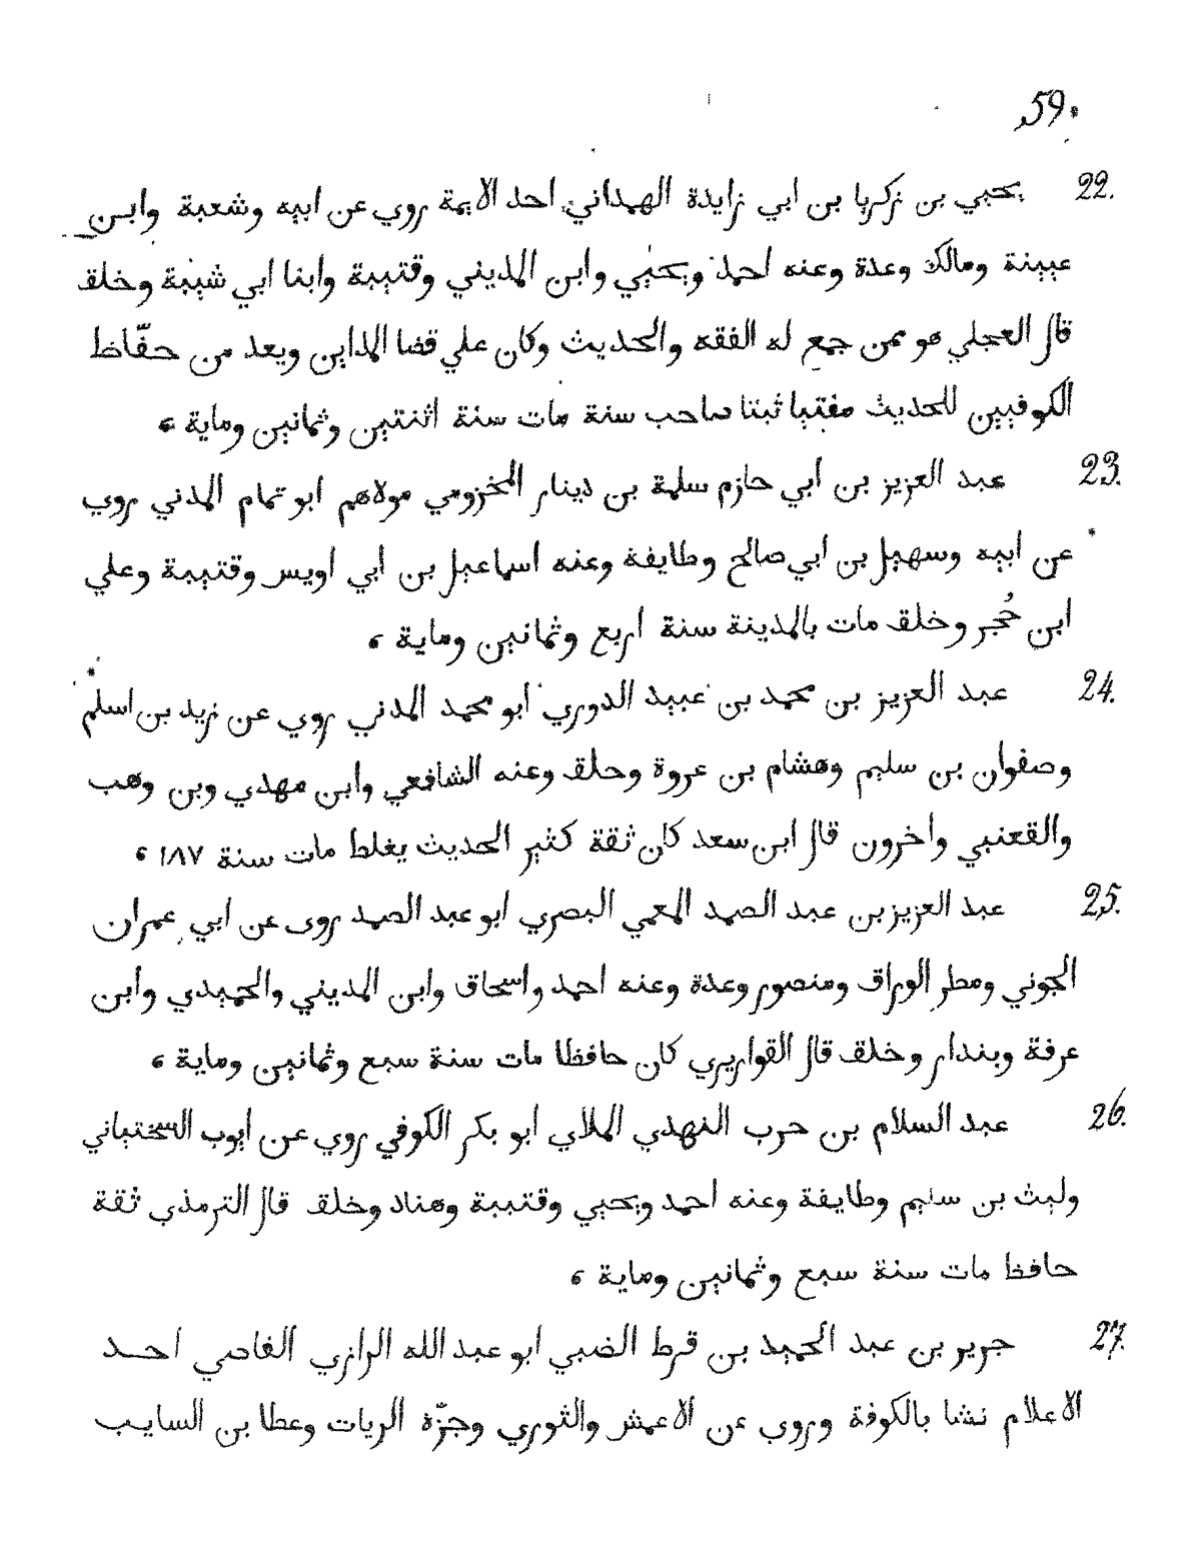 59.
22. يحيي بن زكريا بن ابي زايدة الهمداني احد الايمة روي عن ابيه وشعبة وابن
عيينة ومالك وعدة وعنه احمد ويحيي وابن المديني وقتيبة وابنا ابي شيبة وخلق
قال العجلي هو ممن جمع له الفقه والحديث وكان علي قضا المداين ويعد من حفّاظ
الكوفيين للحديث مفتيا ثبتا صاحب سنة مات سنة اثنتين وثمانين وماية ،
23. عبد العزيز بن ابي حازم سلمة بن دينار المخزومي مولاهم ابو تمام المدني روي
عن ابيه وسهيل بن ابي صالح وطايفة وعنه اسماعيل بن ابي اويس وقتيبة وعلي
ابن حُجر وخلق مات بالمدينة سنة اربع وثمانين وماية ،
24. عبد العزيز بن محمد بن عبيد الدوري ابو محمد المدني روي عن زيد بن اسلم
وصفوان بن سليم وهشام بن عروة وحلق وعنه الشافعي وابن مهدي وبن وهب
والقعنبي واخرون قال ابن سعد كان ثقة كثير الحديث يغلط مات سنة ١٨٧ ،
25. عبد العزيز بن عبد الصمد المعمي البصري ابو عبد الصمد روى عن ابي عمران
الجوني ومطر الوراق ومنصور وعدة وعنه احمد واسحاق وابن المديني والحميدي وابن
عرفة وبندار وخلق قال القواريري كان حافظا مات سنة سبع وثمانين وماية ،
26. عبد السلام بن حرب النهدي الملاي ابو بكر الكوفي روي عن ايوب السختياني
وليث بن سليم وطايفة وعنه احمد ويحيي وقتيبة وهناد وخلق قال الترمذي ثقة
حافظ مات سنة سبع وثمانين وماية ،
27. جرير بن عبد الحميد بن قرط الضبي ابو عبد الله الرازي الفاصي احد
الاعلام نشا بالكوفة وروي عن الاعمش والثوري وجزّه الريات وعطا بن السايب